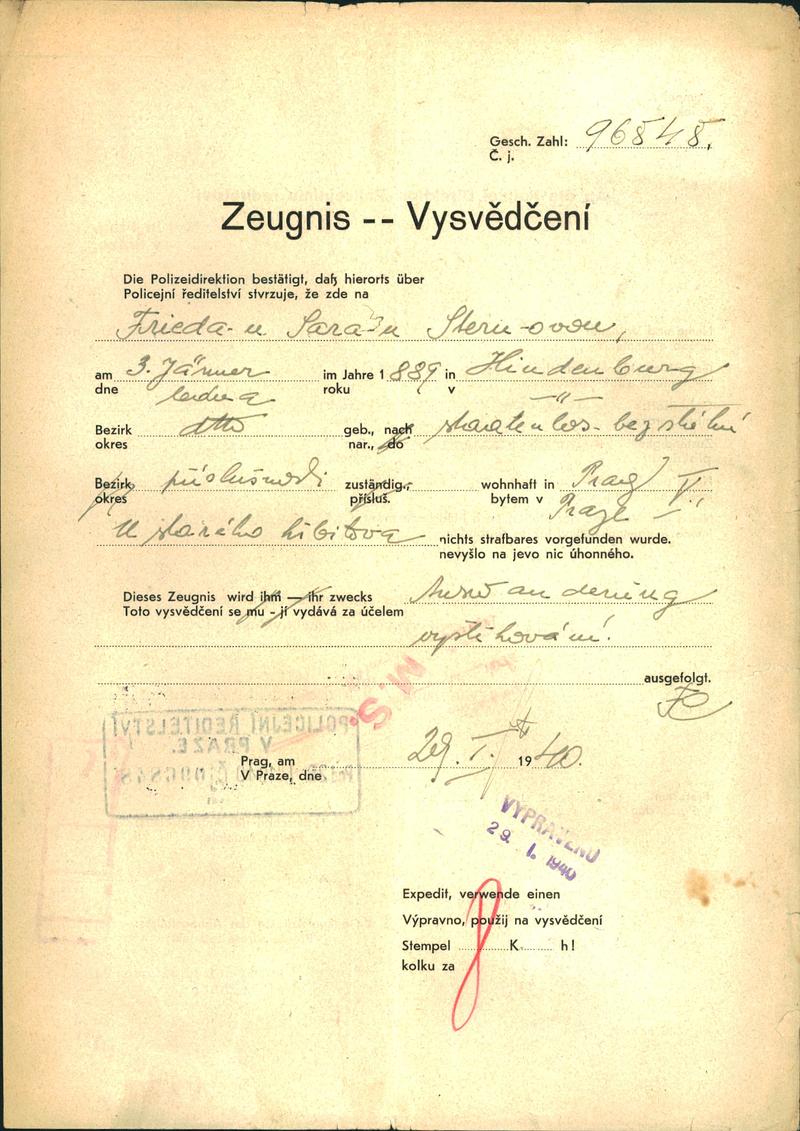 Gesch. Zahl: 96848.
Č. j.
Zeugnis -- Vysvědčení
Die Polizeidirektion bestätigt, daß hierorts über
Policejní ředitelství stvrzuje, že zde na
Frieda-u Sara-u Stern-ovou,
am 3. Jänner im Jahre 1889 in Hindenburg
dne ledna roku v -"-
Bezirk dtto geb., nach staatenlos - bez státní
okres nar., do
Bezirk příslušnosti zuständig, wohnhaft in Prag V.,
okres přísluš. bytem v Praze
U starého hřbitova nichts strafbares vorgefunden wurde.
nevyšlo na jevo nic úhonného.
Dieses Zeugnis wird ihm — ihr zwecks Auswanderung
Toto vysvědčení se mu - jí vydává za účelem
vystěhování.
ausgefolgt.
M. S.
POLICEJNÍ ŘEDITELSTVÍ
V PRAZE.
Prag, am 29. I. 1940.
V Praze, dne
VYPRAVENO
29. I. 1940
Expedit, verwende einen
Výpravno, použij na vysvědčení
Stempel K h!
kolku za